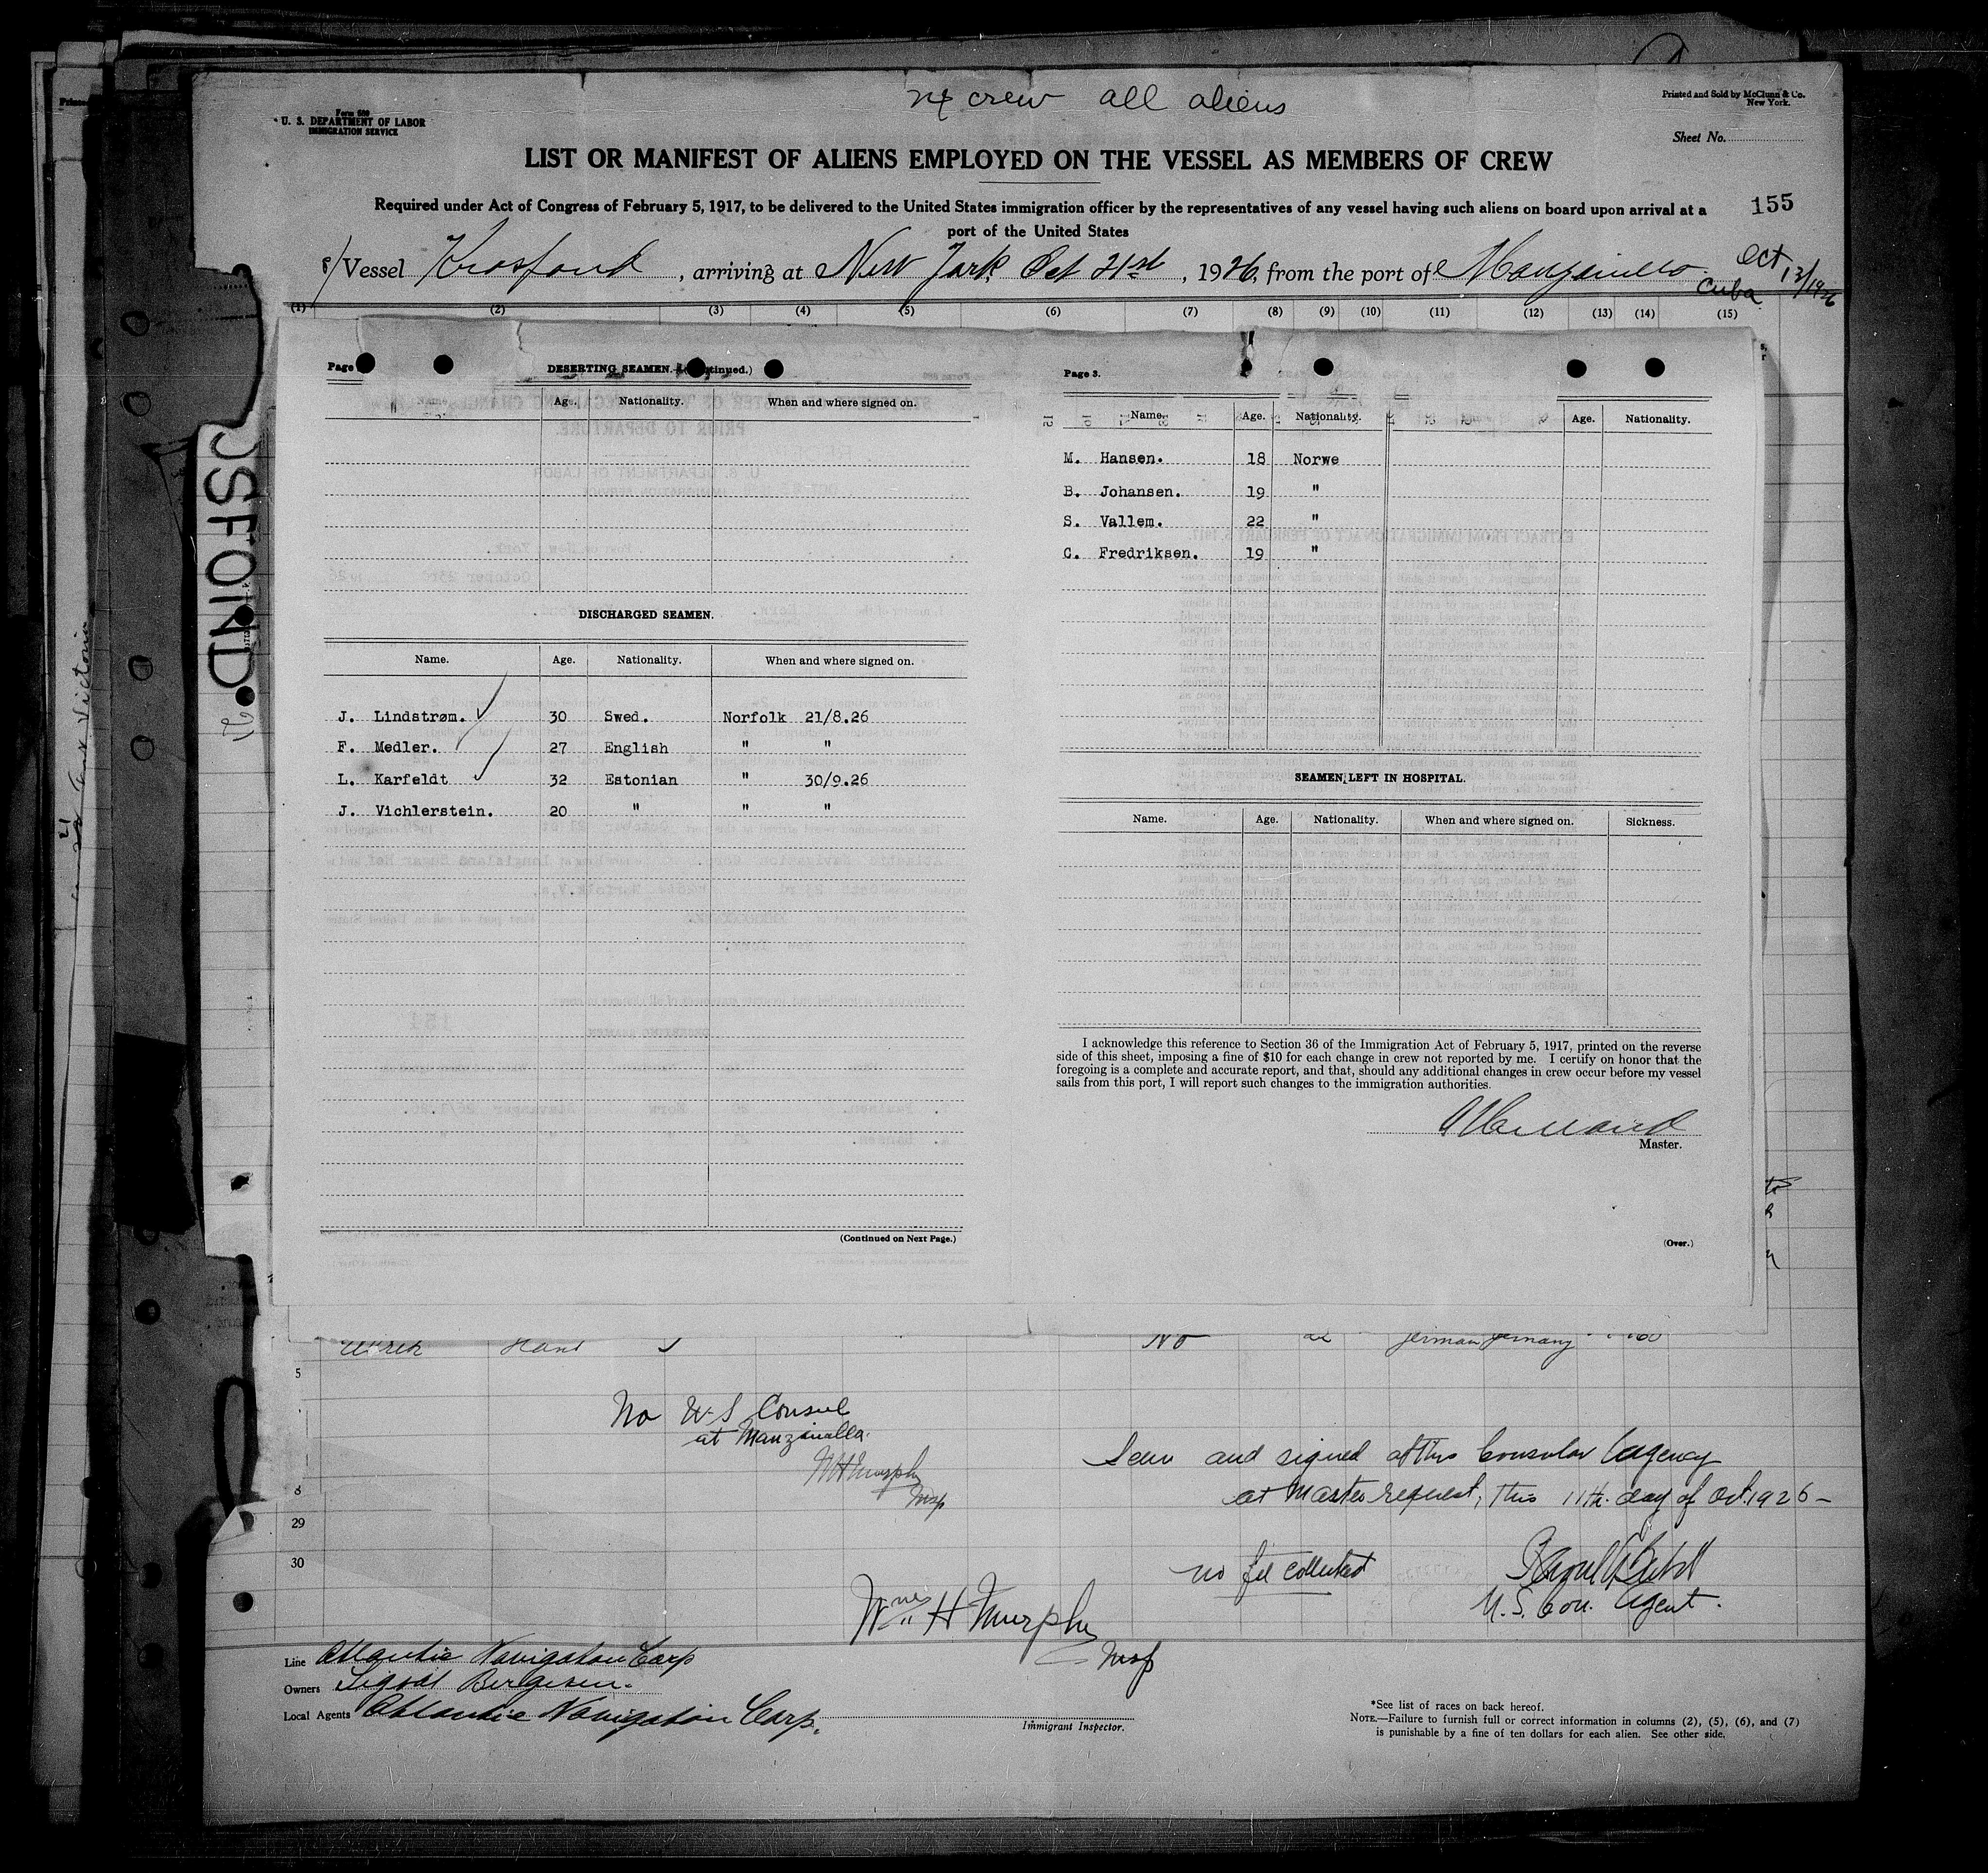 24 crew all aliens
Form 689
U. S. DEPARTMENT OF LABOR
IMMIGRATION SERVICE
Printed and Sold by McClunn & Co.
New York.
Sheet No.
LIST OR MANIFEST OF ALIENS EMPLOYED ON THE VESSEL AS MEMBERS OF CREW
Required under Act of Congress of February 5, 1917, to be delivered to the United States immigration officer by the representatives of any vessel having such aliens on board upon arrival at a
port of the United States
155
Vessel Krosfond, arriving at New York, Oct 21st, 1926, from the port of Manzanillo. Oct 13/1926
Cuba
(1) (2) (3) (4) (5) (6) (7) (8) (9) (10) (11) (12) (13) (14) (15)
OSFOND
Page
DESERTING SEAMEN.
Name. Age. Nationality. When and where signed on.
DISCHARGED SEAMEN.
Name. Age. Nationality. When and where signed on.
J. Lindstrøm. 30 Swed. Norfolk 21/8.26
F. Medler. 27 English " "
L. Karfeldt 32 Estonian " 30/9.26
J. Vichlerstein. 20 " " "
(Continued on Next Page.)
Page 3.
Name. Age. Nationality. Age. Nationality.
M. Hansen. 18 Norwe
B. Johansen. 19 "
S. Vallem. 22 "
C. Fredriksen. 19 "
SEAMEN LEFT IN HOSPITAL.
Name. Age. Nationality. When and where signed on. Sickness.
I acknowledge this reference to Section 36 of the Immigration Act of February 5, 1917, printed on the reverse
side of this sheet, imposing a fine of $10 for each change in crew not reported by me. I certify on honor that the
foregoing is a complete and accurate report, and that, should any additional changes in crew occur before my vessel
sails from this port, I will report such changes to the immigration authorities.
Master.
(Over.)
Hans No 22 German Germany
5
No U-S Consul
at Manzanilla.
WH Murphy
Insp
8
29
30
Seen and signed at this Consular Agency
at Master request, this 11th. day of Oct. 1926-
no fee collected
U.S. Con. Agent.
Wm H Murphy
Insp
Line Atlantic Navigation Corp
Owners Sigval Bergesen.
Local Agents Atlantic Navigation Corp.
Immigrant Inspector.
*See list of races on back hereof.
NOTE.—Failure to furnish full or correct information in columns (2), (5), (6), and (7)
is punishable by a fine of ten dollars for each alien. See other side.